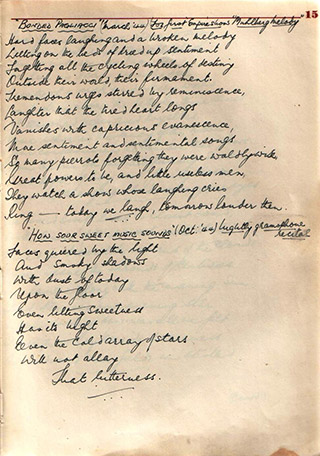 15
BONDED PAGLIACCI (March '44) for first Empire show Muhlberg melody
Hard faces laughing and a broken melody
Letting on the heads of dread up sentiment
Forgetting all the cycling wheels of destiny
Outside their world, their firmament.
Tremendous urges stirred by reminiscence,
Laughter that the tired heart longs
Vanishes with capricious evanescence,
More sentiment and sentimental songs
So many pierrots forgetting they were
Great powers to be, and little useless men,
They watch a show whose laughing cries
Ring — today we laugh, tomorrow louder then.
'HOW SOUR SWEET MUSIC SOUNDS' (Oct. '44) nightly gramophone recital
Faces quiered by the light
And smoky shadows
With dust of today
Upon the floor
Even lilting sweetness
Has its light
Even the cold array of stars
Will not allay
That bitterness.